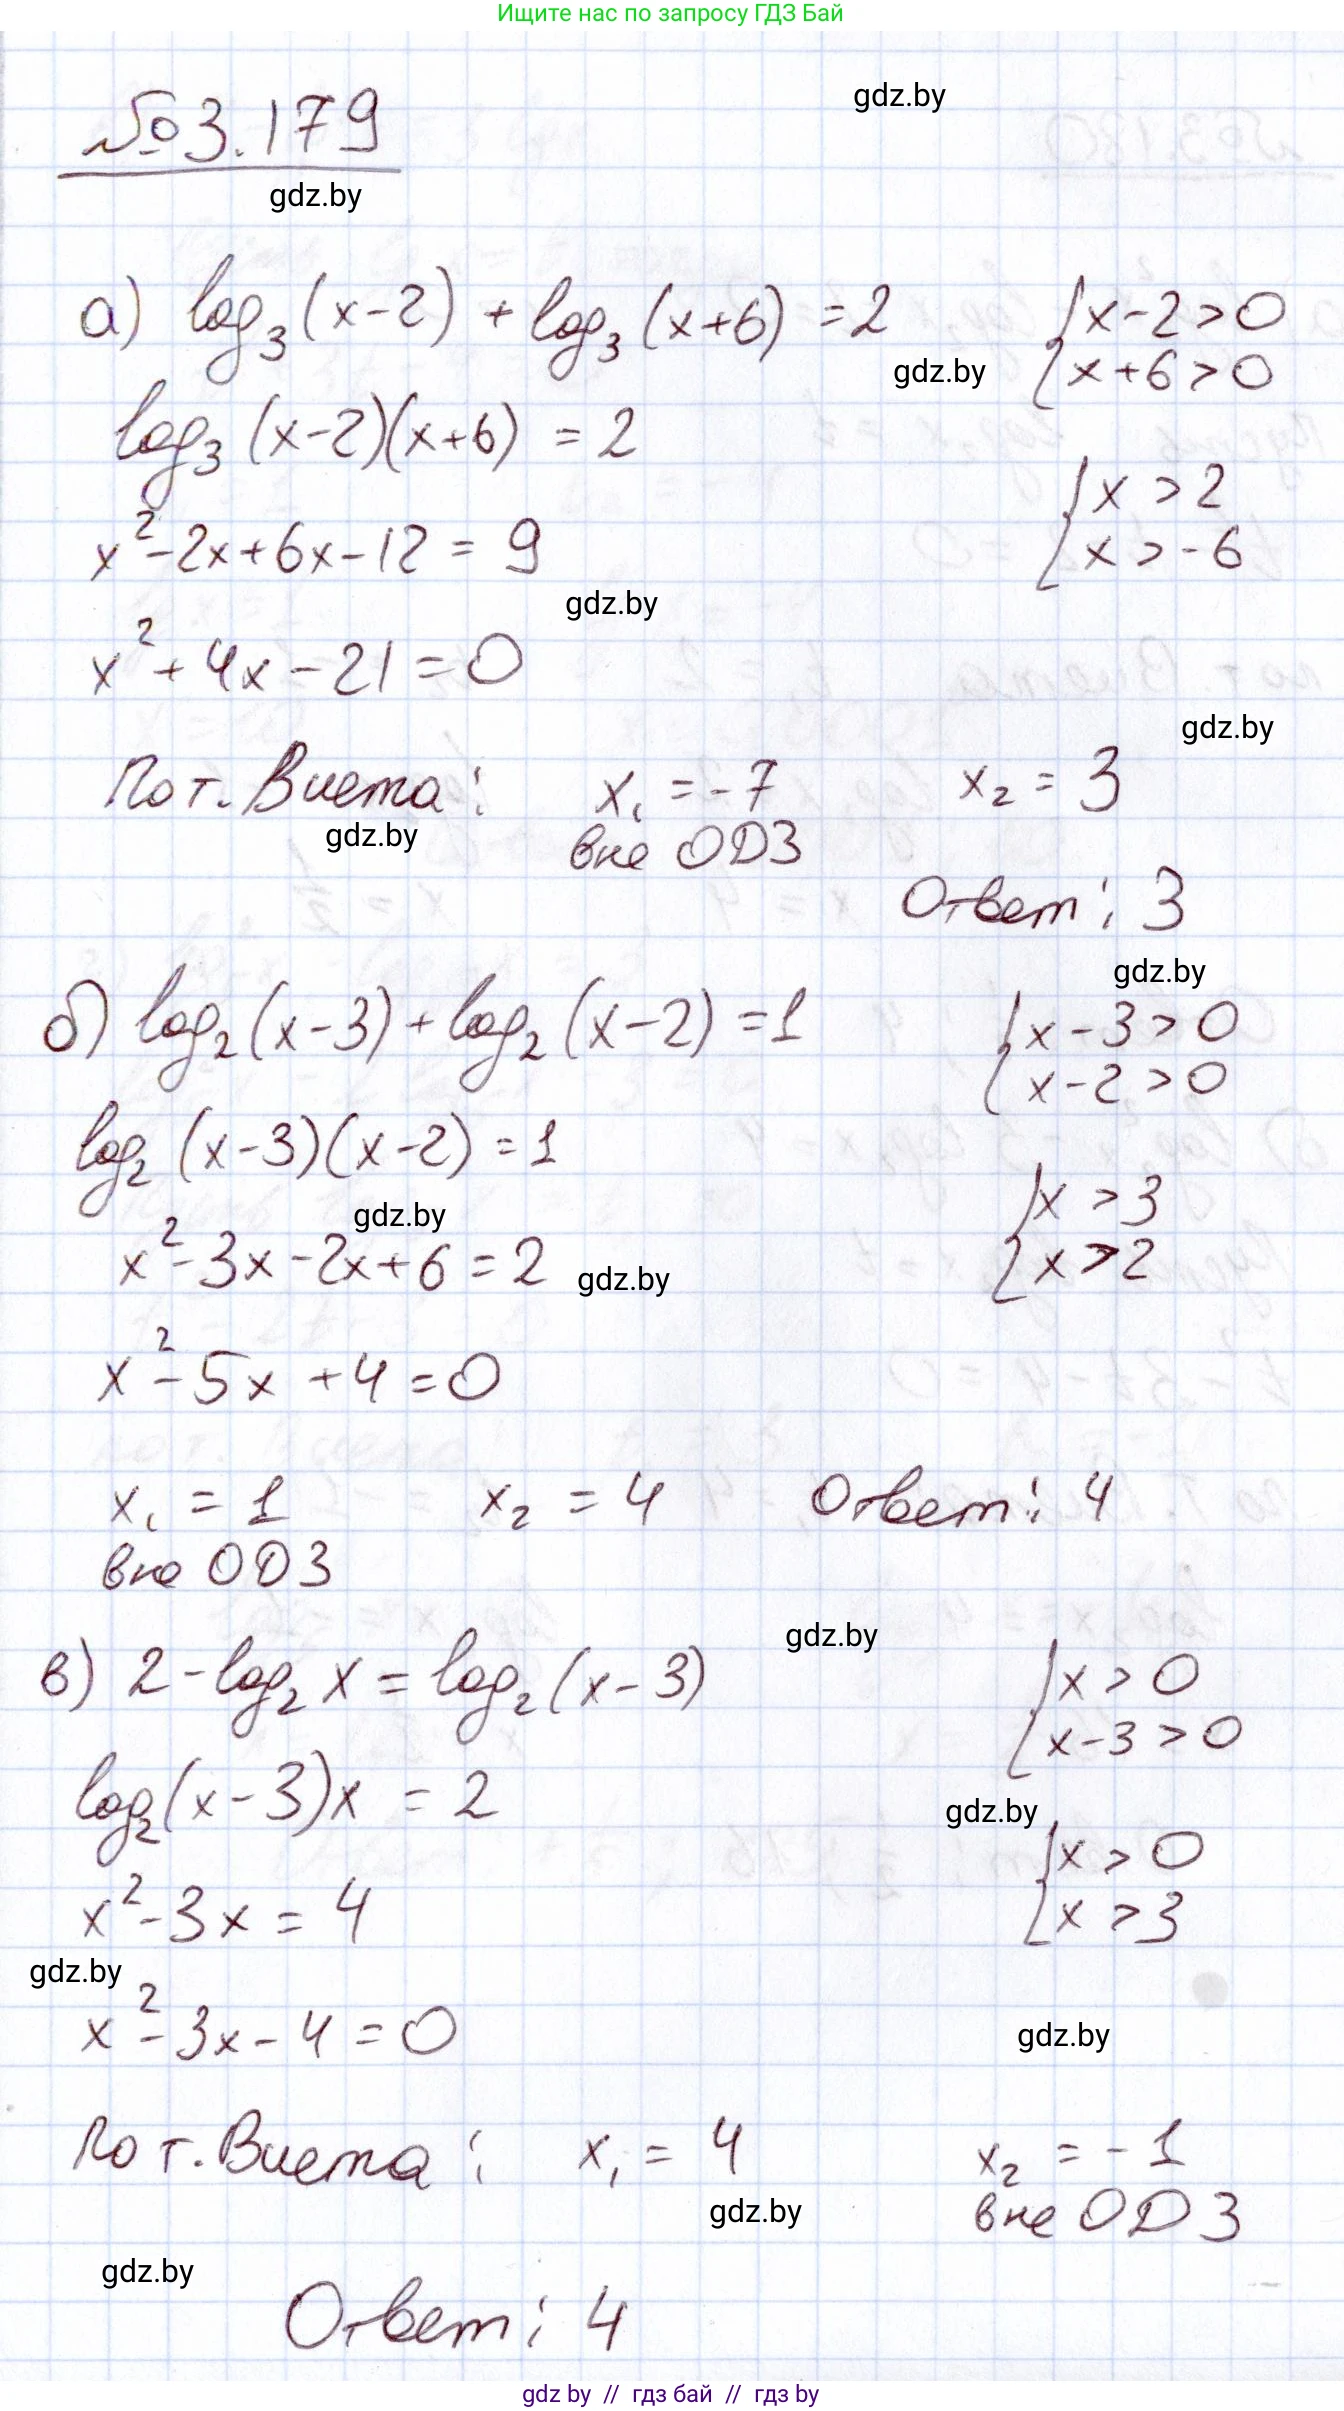 Ищите нас по запросу ГДЗ Бай
gdz.by
№3.179
gdz.by
а) log₃(x-2) + log₃(x+6) = 2
{x-2>0
{x+6>0
gdz.by
log₃(x-2)(x+6) = 2
{x>2
{x>-6
x²-2x+6x-12=9
gdz.by
x²+4x-21=0
gdz.by
По т. Виета: x₁=-7 x₂=3
gdz.by
вне ОДЗ
Ответ: 3
gdz.by
б) log₂(x-3)+log₂(x-2)=1
{x-3>0
{x-2>0
log₂(x-3)(x-2)=1
{x>3
{x>2
gdz.by
x²-3x-2x+6=2
gdz.by
x²-5x+4=0
x₁=1 x₂=4 Ответ: 4
вне ОДЗ
gdz.by
в) 2-log₂x=log₂(x-3)
{x>0
{x-3>0
log₂(x-3)x=2
gdz.by
{x>0
{x>3
x²-3x=4
gdz.by
x²-3x-4=0
gdz.by
По т. Виета: x₁=4 x₂=-1
gdz.by
вне ОДЗ
gdz.by
Ответ: 4
gdz by // гдз бай // гдз by